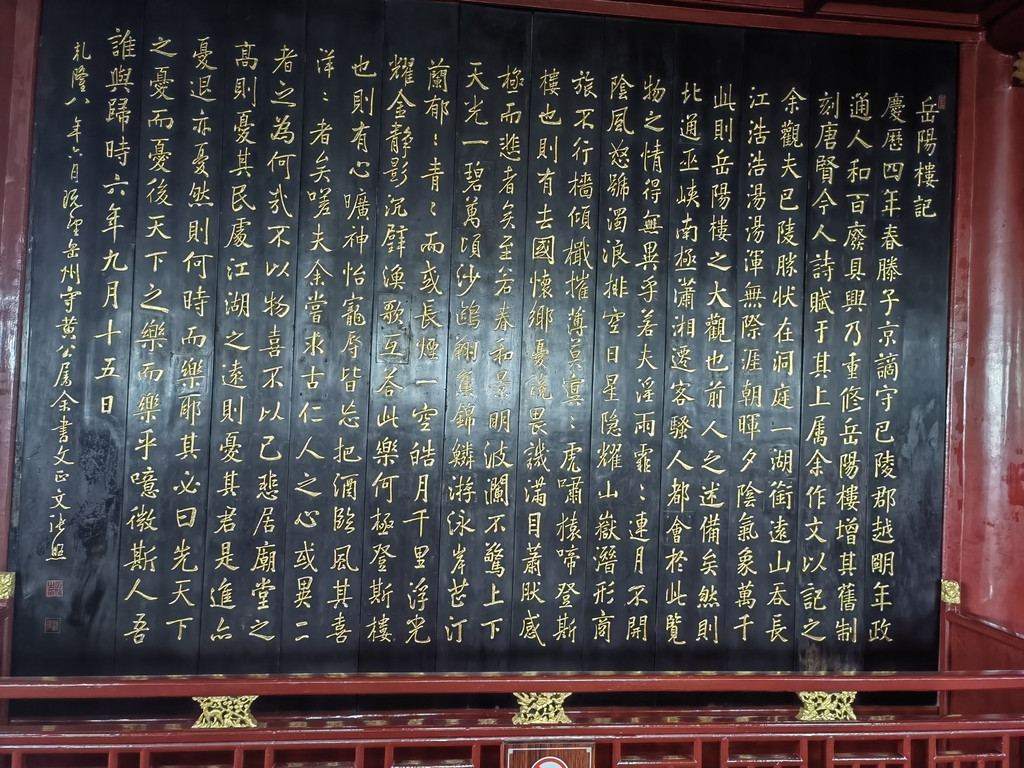 岳陽樓記
慶曆四年春滕子京謫守巴陵郡越明年政
通人和百廢具興乃重修岳陽樓增其舊制
刻唐賢今人詩賦于其上属余作文以記之
余觀夫巴陵勝状在洞庭一湖銜遠山吞長
江浩浩湯湯渾無際涯朝暉夕陰氣象萬千
此則岳陽樓之大觀也前人之述備矣然則
北通巫峽南極瀟湘遷客騷人都會於此覽
物之情得無異乎若夫淫雨霏〻連月不開
陰風怒號濁浪排空日星隐耀山嶽潛形商
旅不行檣傾檝摧薄莫冥〻虎嘯猿啼登斯
樓也則有去國懷鄉憂讒畏譏滿目蕭然感
極而悲者矣至若春和景明波瀾不驚上下
天光一碧萬頃沙鷗翔集錦鱗游泳岸芷汀
蘭郁〻青〻而或長煙一空皓月千里浮光
耀金静影沉璧漁歌互荅此樂何極登斯樓
也則有心曠神怡寵辱皆忘把酒臨風其喜
洋〻者矣嗟夫余嘗求古仁人之心或異二
者之為何哉不以物喜不以己悲居廟堂之
高則憂其民處江湖之遠則憂其君是進亦
憂退亦憂然則何時而樂耶其必曰先天下
之憂而憂後天下之樂而樂乎噫微斯人吾
誰與歸時六年九月十五日
乾隆八年六月岳州守黄公屬余書文正文張照